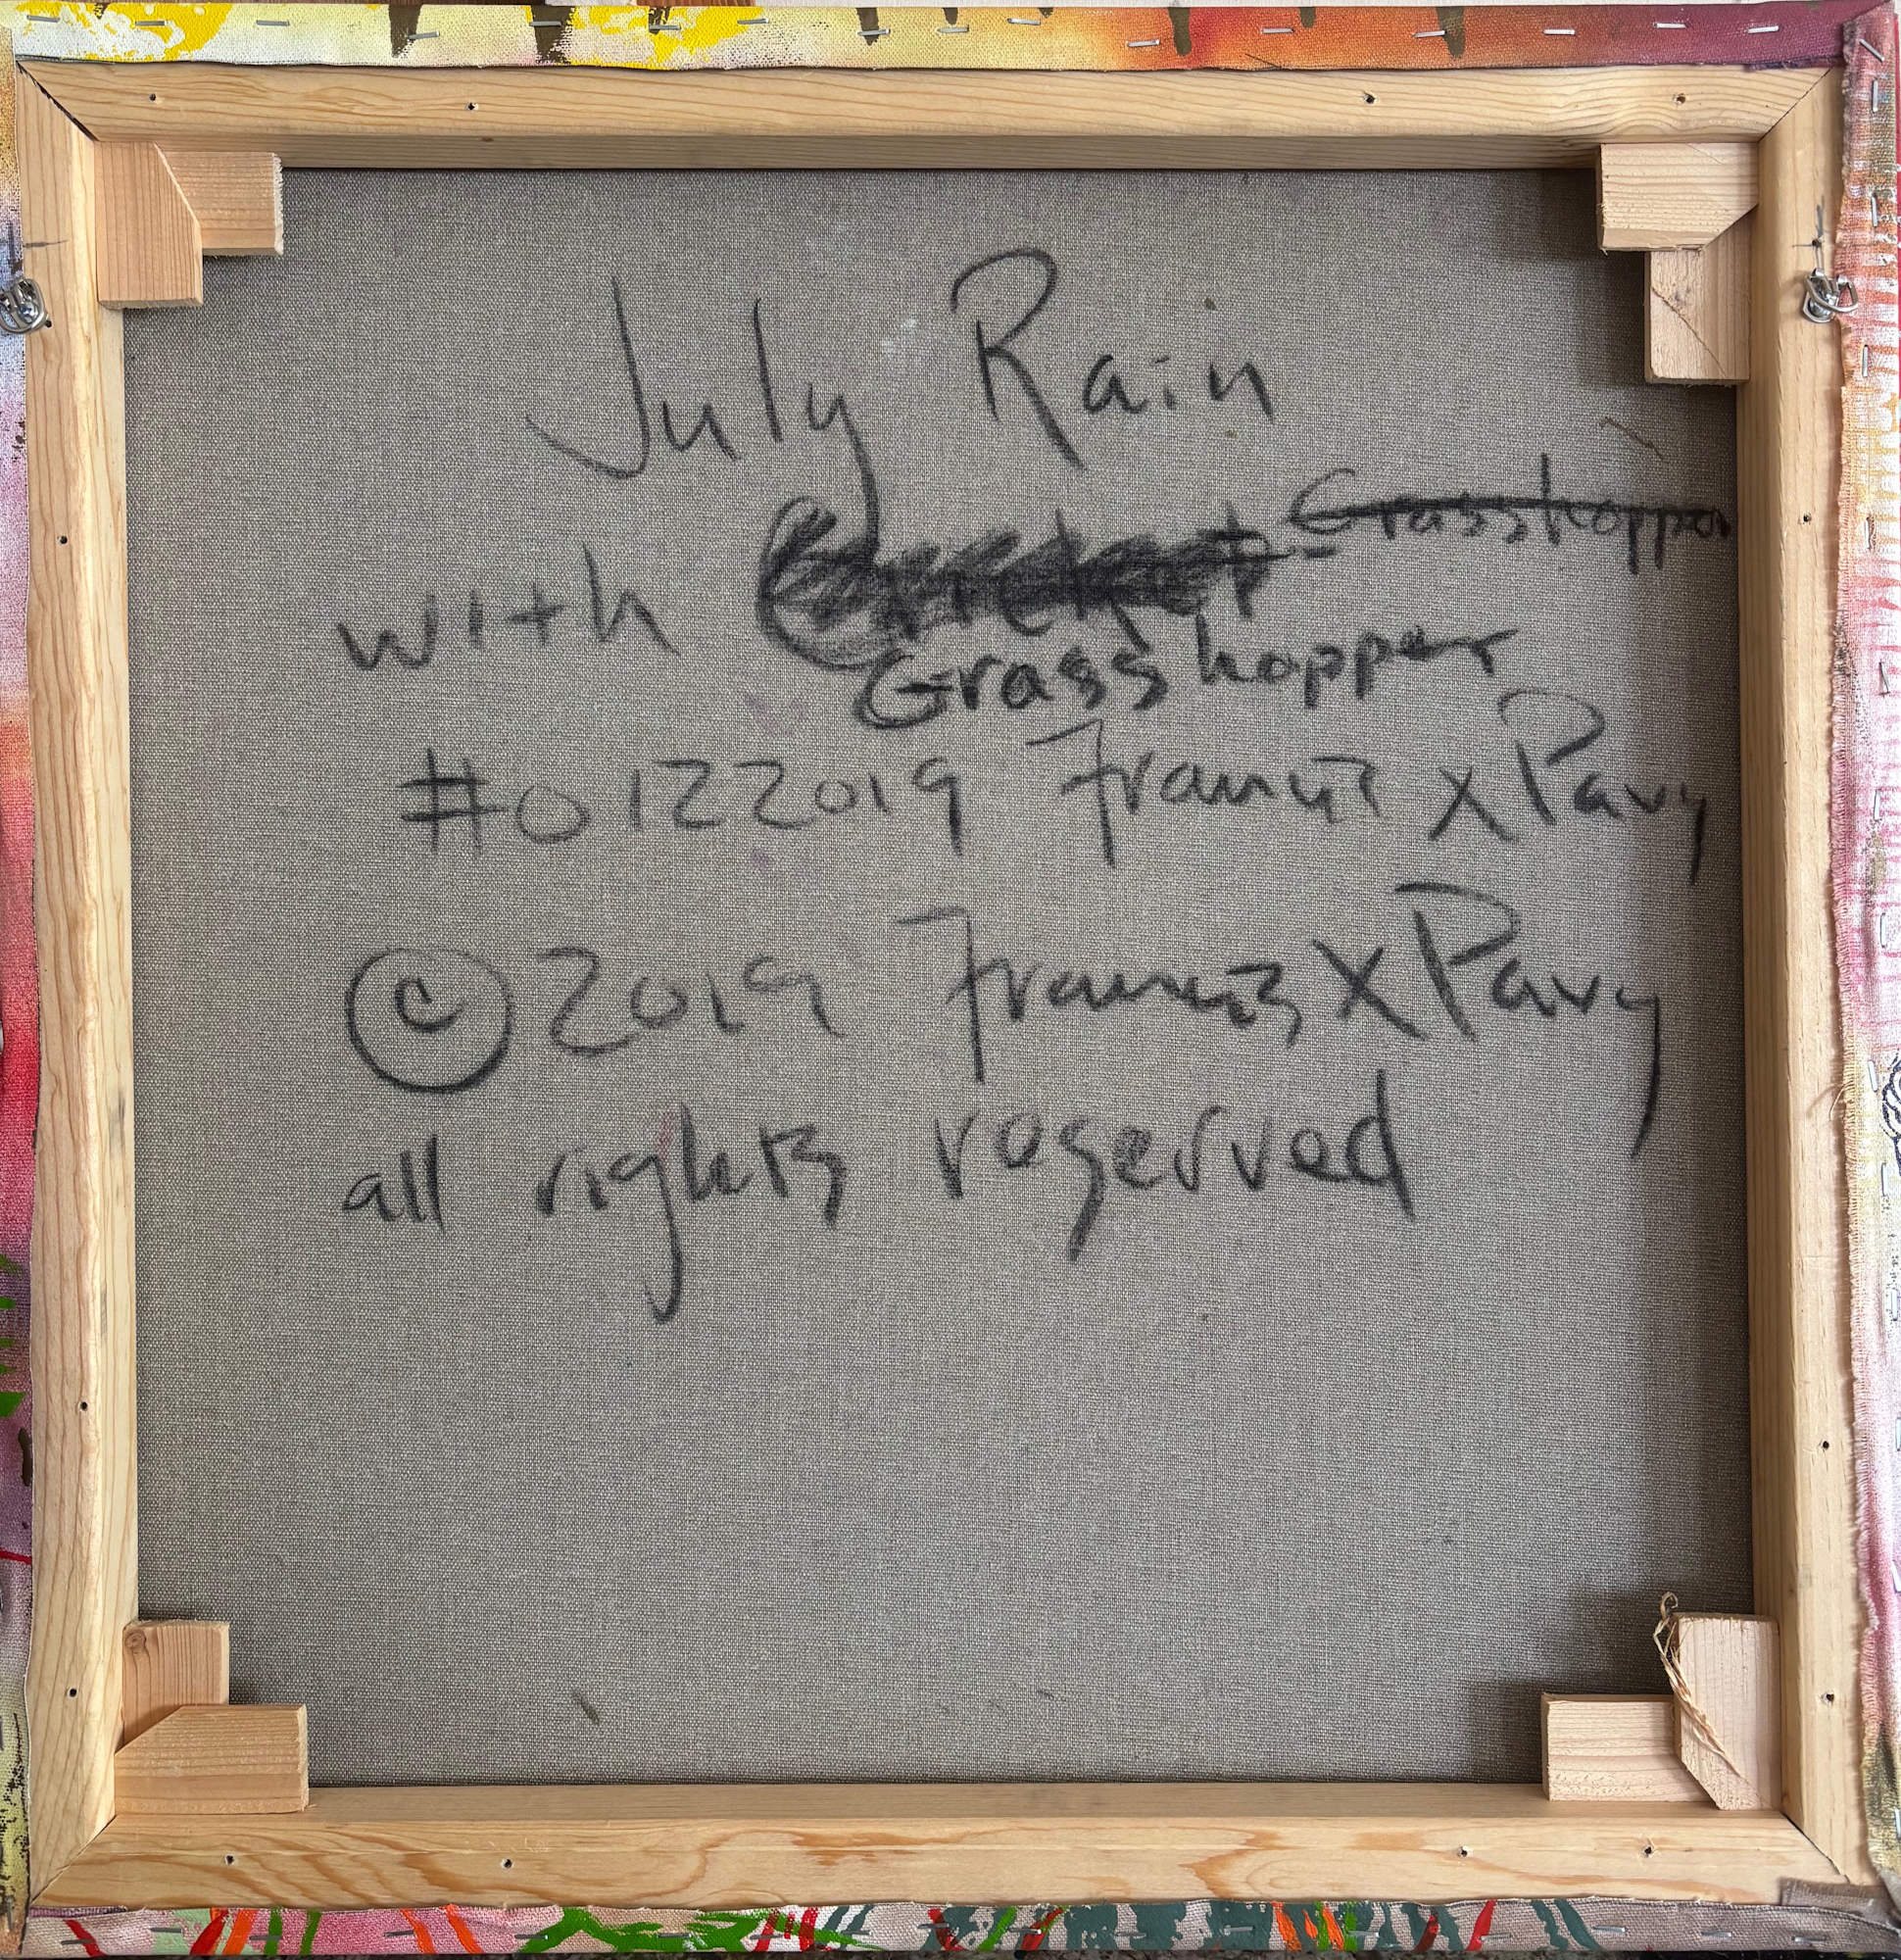 July Rain
Grasshopper
with Cricket
Grasshopper
#0122019 Francis X Pavy
© 2019 Francis X Pavy
all rights reserved